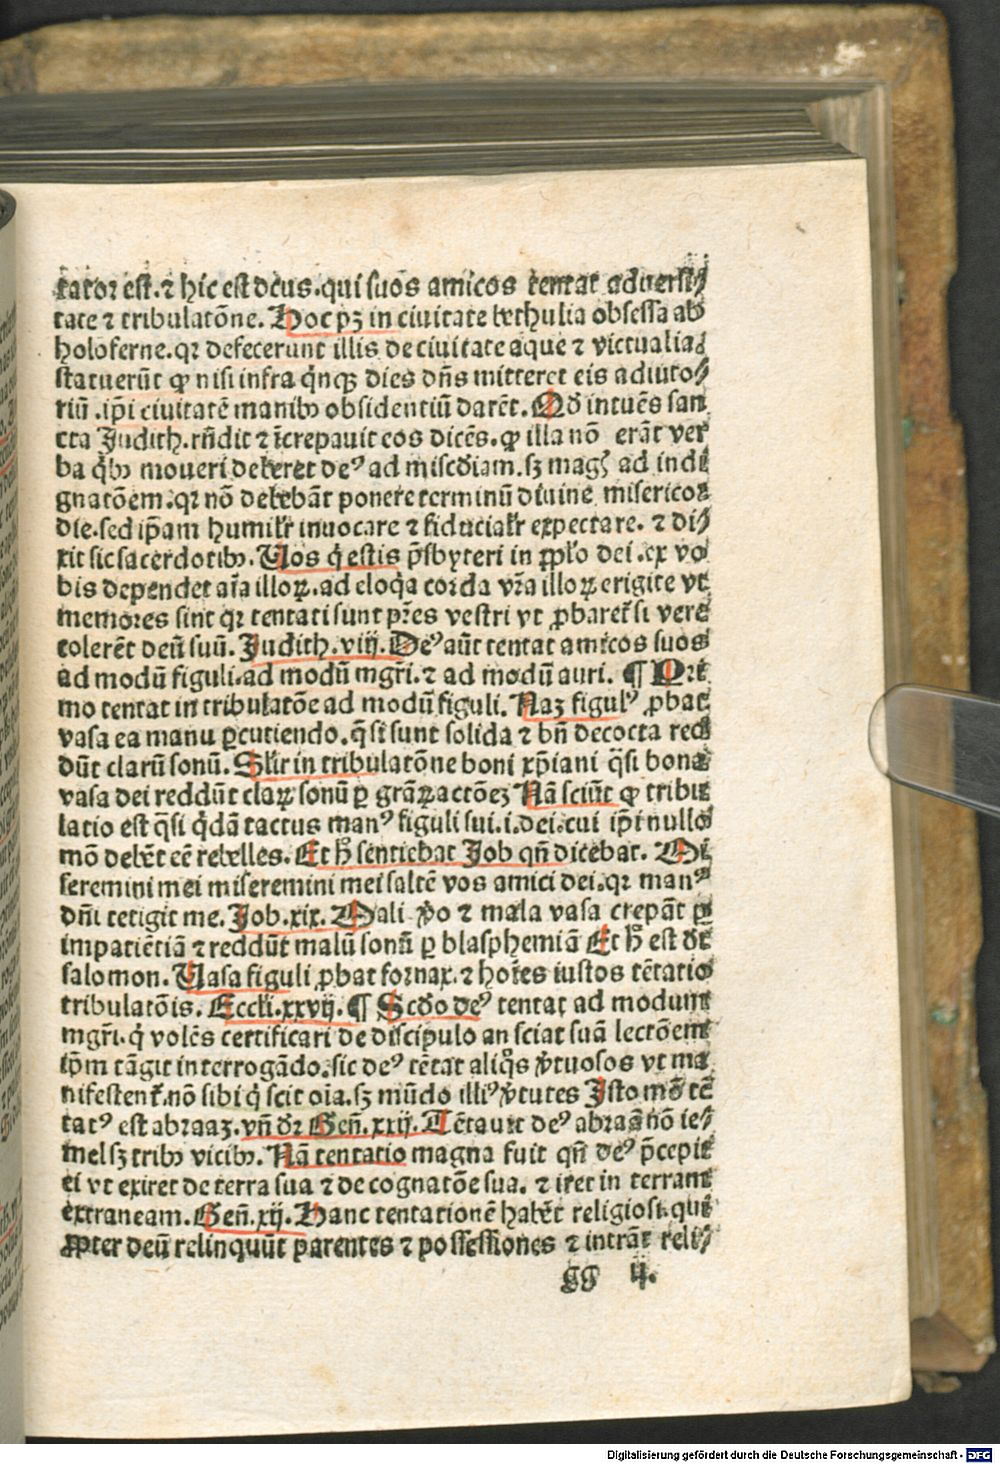 tator est. ⁊ hic est deus. qui suos amicos tentat aduersi⸗
tate ⁊ tribulatõne. Hoc pꝫ in ciuitate bethulia obsessa ab
holoferne. qꝛ defecerunt illis de ciuitate aque ⁊ victualia.
statuerũt ꝙ nisi infra q̇nqꝫ dies dñs mitteret eis adiuto⸗
riũ .ip̃i ciuitatẽ manibꝰ obsidentiũ darẽt. Qd̃ intuẽs san
cta Judith. rñdit ⁊ ĩcrepauit eos dicẽs. ꝙ illa nõ erãt ver
ba q̇bꝰ moueri deberet deꝰ ad miscďiam. sꝫ magꝭ ad indi
gnatõem. qꝛ nõ debebãt ponere terminũ diuine misericor
die. sed ip̃am humilr̃ inuocare ⁊ fiducialr̃ expectare. ⁊ di⸗
xit sic sacerdotibꝰ. Vos q̇ estis p̃sbyteri in pp̃lo dei. ex vo
bis dependet aĩa illoꝝ. ad eloq̇a corda vr̃a illoꝝ erigite vt
memores sint qꝛ tentati sunt pr̃es vestri vt ꝓbaret̃ si vere
colerẽt deũ suũ. Judith. viij. Deꝰ aũt tentat amicos suos
ad modũ figuli. ad modũ mgr̃i. ⁊ ad modũ auri. ¶ Pri
mo tentat in tribulatõe ad modũ figuli. Naꝫ figulꝰ ꝓbat
vasa ea manu ꝑcutiendo. q̃ si sunt solida ⁊ bñ decocta red
dũt clarũ sonũ. Slir̃ in tribulatõne boni xp̃iani q̃si bona
vasa dei reddũt claꝝ sonũ ꝑ gr̃aꝝ actõeꝫ Nã sciũt ꝙ tribu
latio est q̃si q̇dã tactus manꝰ figuli sui. i. dei. cui ip̃i nullo
mõ debẽt eẽ rebelles. Et h̃ sentiebat Job qñ dicebat. Mi
seremini mei miseremini mei saltẽ vos amici dei. qꝛ manꝰ
dñi tetigit me. Job. xix. Mali ṽo ⁊ mala vasa crepãt ꝑ
impatiẽtiã ⁊ reddũt malũ sonũ ꝑ blasphemiã Et h̃ est ďt
salomon. Vasa figuli ꝓbat fornax. ⁊ hoĩes iustos tẽtatio
tribulatõis. Eccli. xxvij. ¶ Scďo deꝰ tentat ad modum
mgr̃i. q̇ volẽs certificari de discipulo an sciat suã lectõem
ip̃m tãgit interrogãdo. sic deꝰ tẽtat aliq̇s ṽtuosos vt ma
nifestent̃. nõ sibi q̇ scit oĩa. sꝫ mũdo illiꝰ ṽtutes Isto mõ tẽ
tatꝰ est abraaꝫ. vñ ďr Geñ. xxij. Tẽtauit deꝰ abraã nõ se⸗
mel sꝫ tribꝰ vicibꝰ. Nã tentatio magna fuit qñ deꝰ p̃cepit
ei vt exiret de terra sua ⁊ de cognatõe sua. ⁊ iret in terram
extraneam. Geñ. xij. Hanc tentationẽ habẽt religiosi. qui
ꝓpter deũ relinquũt parentes ⁊ possessiones ⁊ intrãt reli⸗
gg ij.
Digitalisierung gefördert durch die Deutsche Forschungsgemeinschaft - DFG